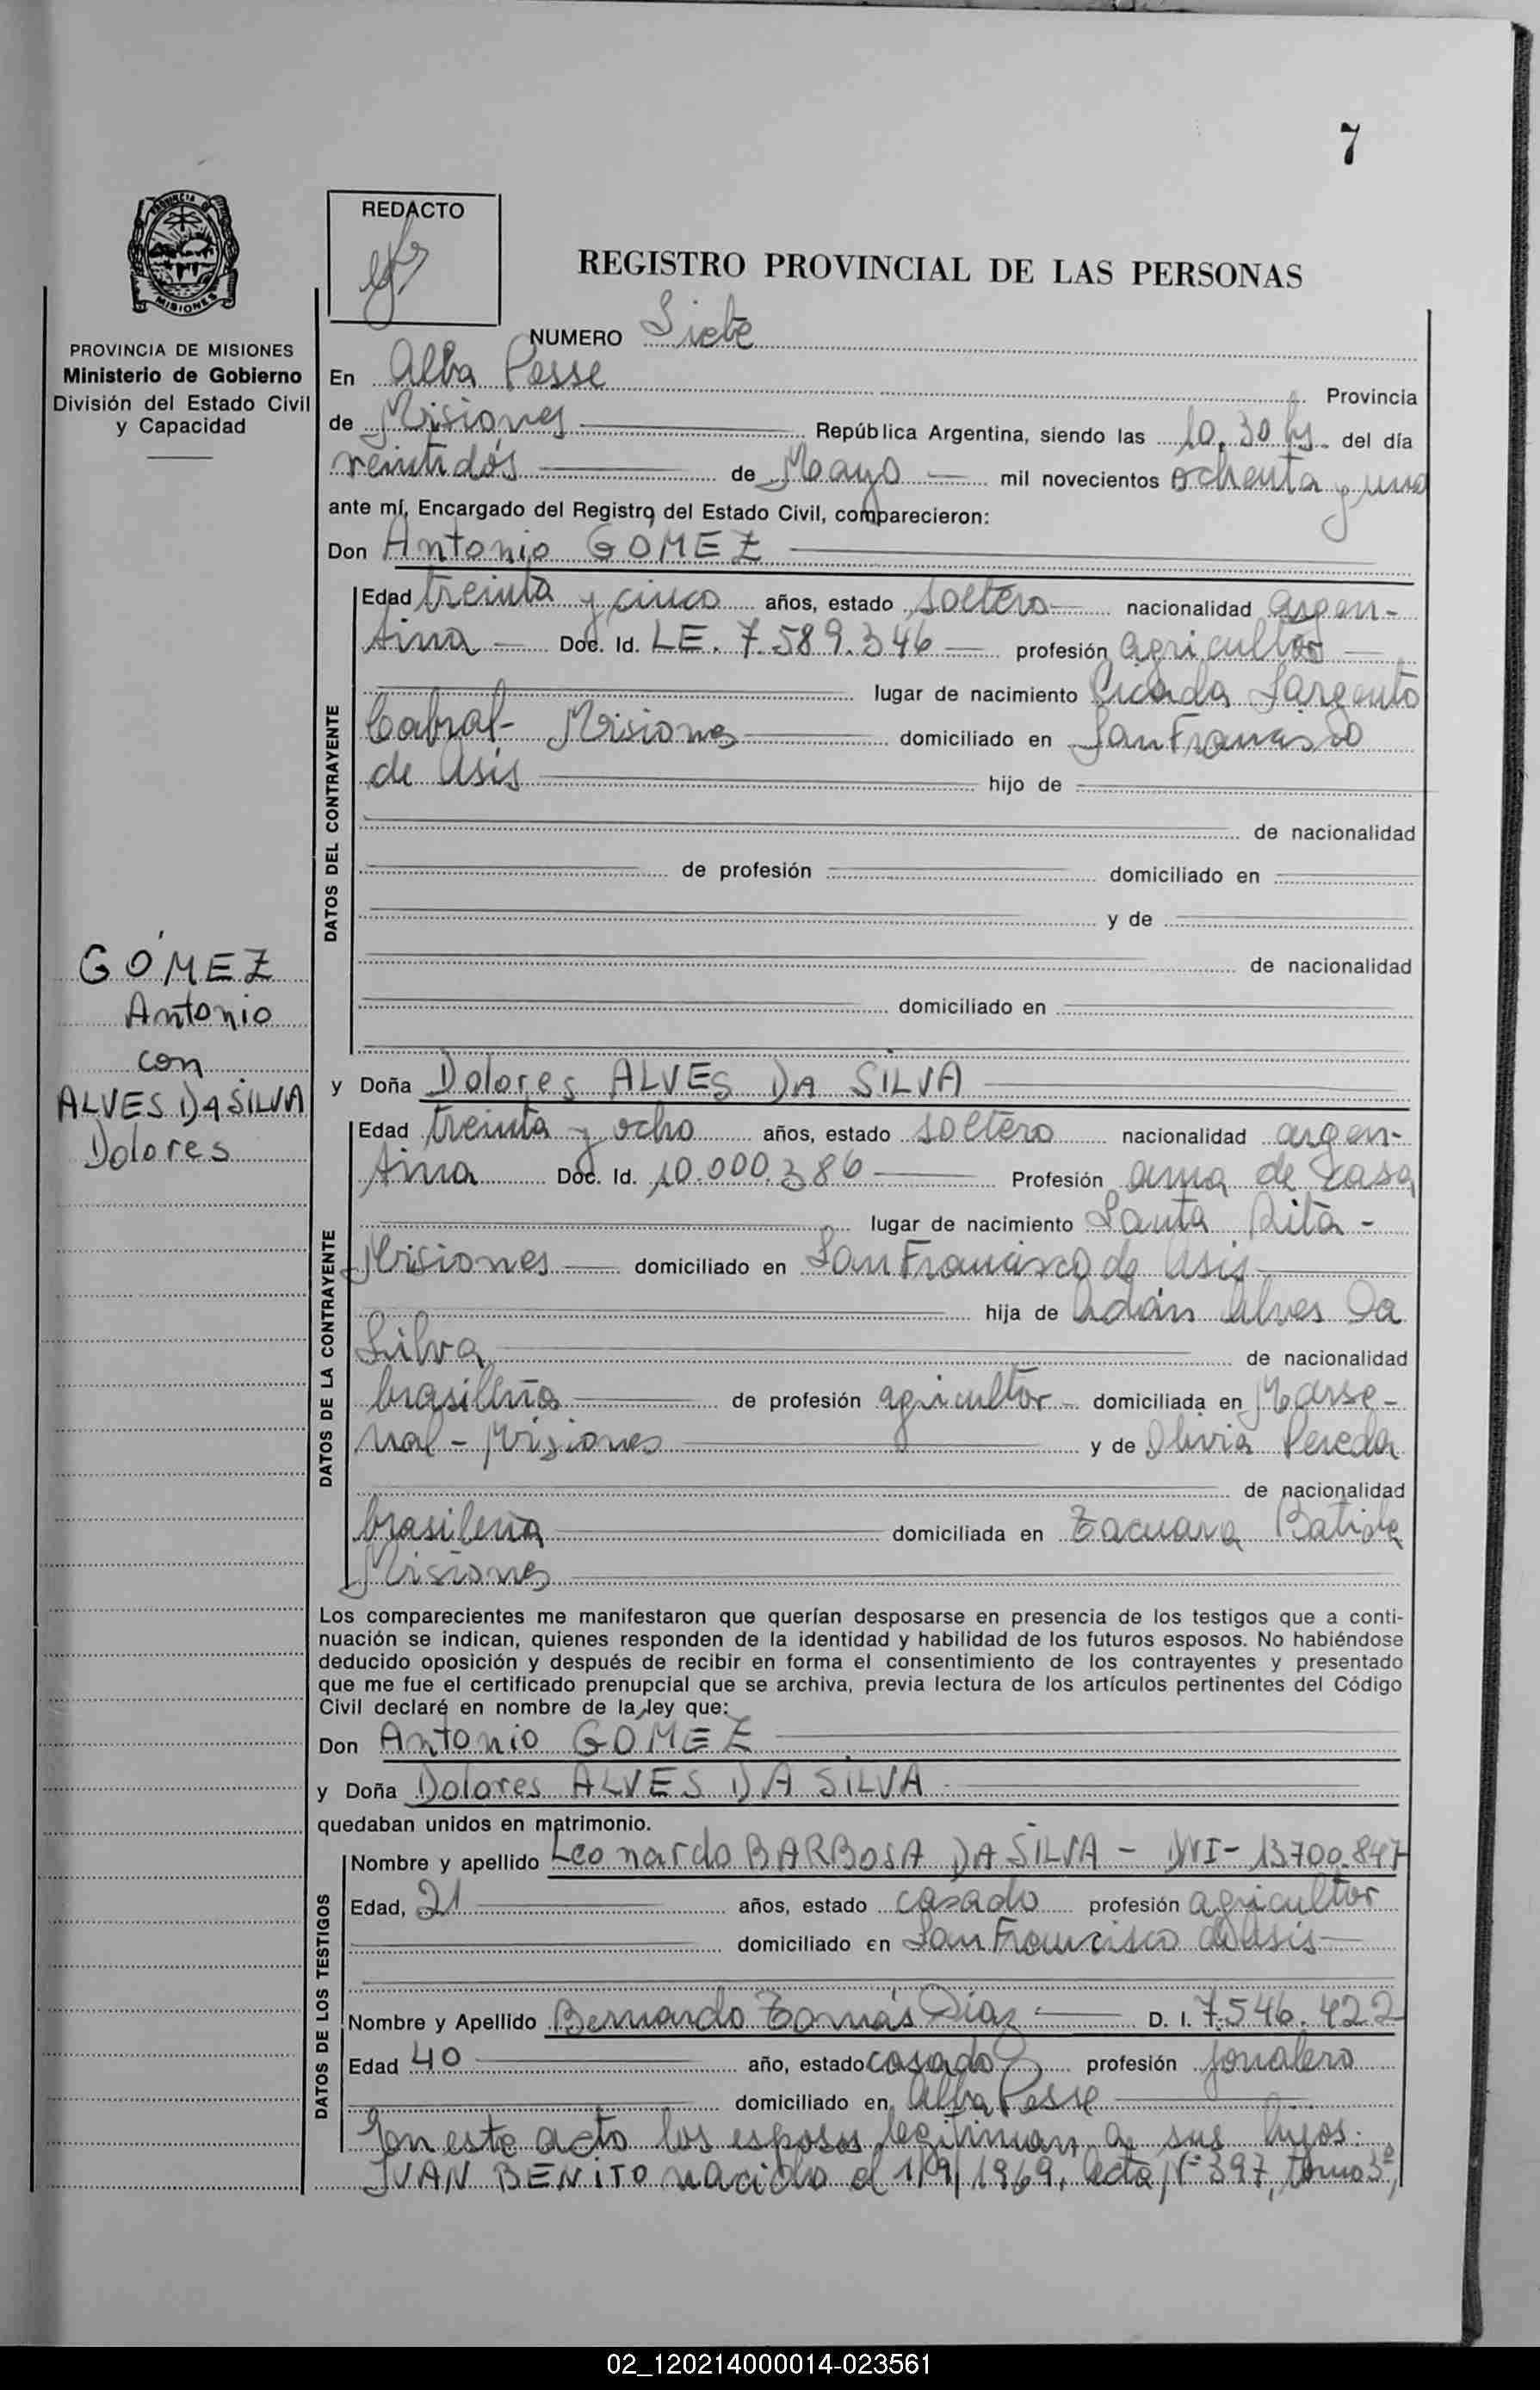 7
PROVINCIA DE MISIONES
Ministerio de Gobierno
División del Estado Civil
y Capacidad
REDACTO
REGISTRO PROVINCIAL DE LAS PERSONAS
NUMERO Siete
En Alba Posse Provincia
de Misiones República Argentina, siendo las 10,30 hs. del día
veintidós de Mayo mil novecientos ochenta y uno
ante mí, Encargado del Registro del Estado Civil, comparecieron:
Don Antonio GOMEZ
DATOS DEL CONTRAYENTE
Edad treinta y cinco años, estado soltero nacionalidad argen-
tina Doc. Id. LE. 7.589.346 profesión agricultor
lugar de nacimiento Picada Sargento
Cabral - Misiones domiciliado en San Francisco
de Asis hijo de
de nacionalidad
de profesión domiciliado en
y de
de nacionalidad
domiciliado en
GÓMEZ
Antonio
con
ALVES DA SILVA
Dolores
y Doña Dolores ALVES DA SILVA
DATOS DE LA CONTRAYENTE
Edad treinta y ocho años, estado soltero nacionalidad argen-
tina Doc. Id. 10.000.386 Profesión ama de casa
lugar de nacimiento Santa Rita -
Misiones domiciliado en San Francisco de Asis
hija de Adán Alves Da
Silva de nacionalidad
brasileña de profesión agricultor domiciliada en
Misiones y de Olivia Pereda
de nacionalidad
brasileña domiciliada en Tacuara Batida
Misiones
Los comparecientes me manifestaron que querían desposarse en presencia de los testigos que a conti-
nuación se indican, quienes responden de la identidad y habilidad de los futuros esposos. No habiéndose
deducido oposición y después de recibir en forma el consentimiento de los contrayentes y presentado
que me fue el certificado prenupcial que se archiva, previa lectura de los artículos pertinentes del Código
Civil declaré en nombre de la ley que:
Don Antonio GOMEZ
y Doña Dolores ALVES DA SILVA
quedaban unidos en matrimonio.
DATOS DE LOS TESTIGOS
Nombre y apellido Leonardo BARBOSA DA SILVA - DNI - 13.700.847
Edad, 21 años, estado casado profesión agricultor
domiciliado en San Francisco de Asis
Nombre y Apellido Bernardo Tomás Díaz D. I. 7.546.422
Edad 40 año, estado casado profesión jornalero
domiciliado en Alba Posse
En este acto los esposos legitiman a sus hijos:
IVAN BENITO nacido el 1/9/1969, Acta Nº 397, tomo 3º,
02_120214000014-023561